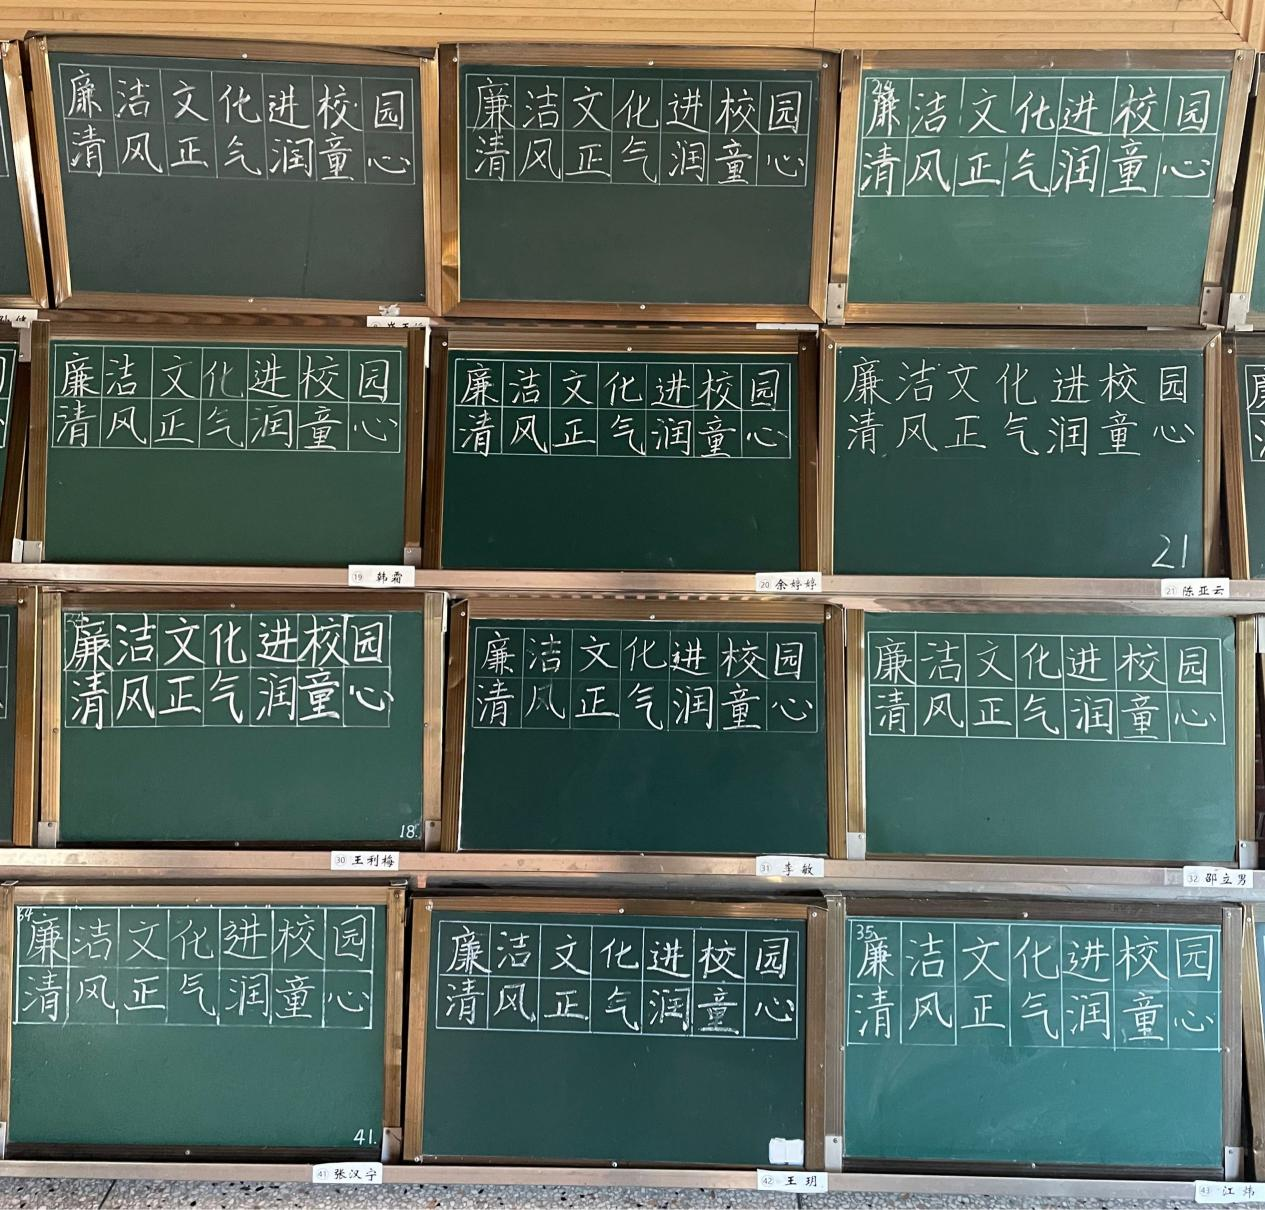 廉洁文化进校园
清风正气润童心
廉洁文化进校园
清风正气润童心
廉洁文化进校园
清风正气润童心
廉洁文化进校园
清风正气润童心
19 韩霜
廉洁文化进校园
清风正气润童心
20 余婷婷
廉洁文化进校园
清风正气润童心
21
21 陈亚云
廉洁文化进校园
清风正气润童心
18.
30 王利梅
廉洁文化进校园
清风正气润童心
31 李敏
廉洁文化进校园
清风正气润童心
32 邵立男
廉洁文化进校园
清风正气润童心
41.
41 张汉宁
廉洁文化进校园
清风正气润童心
42 王玥
35
廉洁文化进校园
清风正气润童心
43 江炜